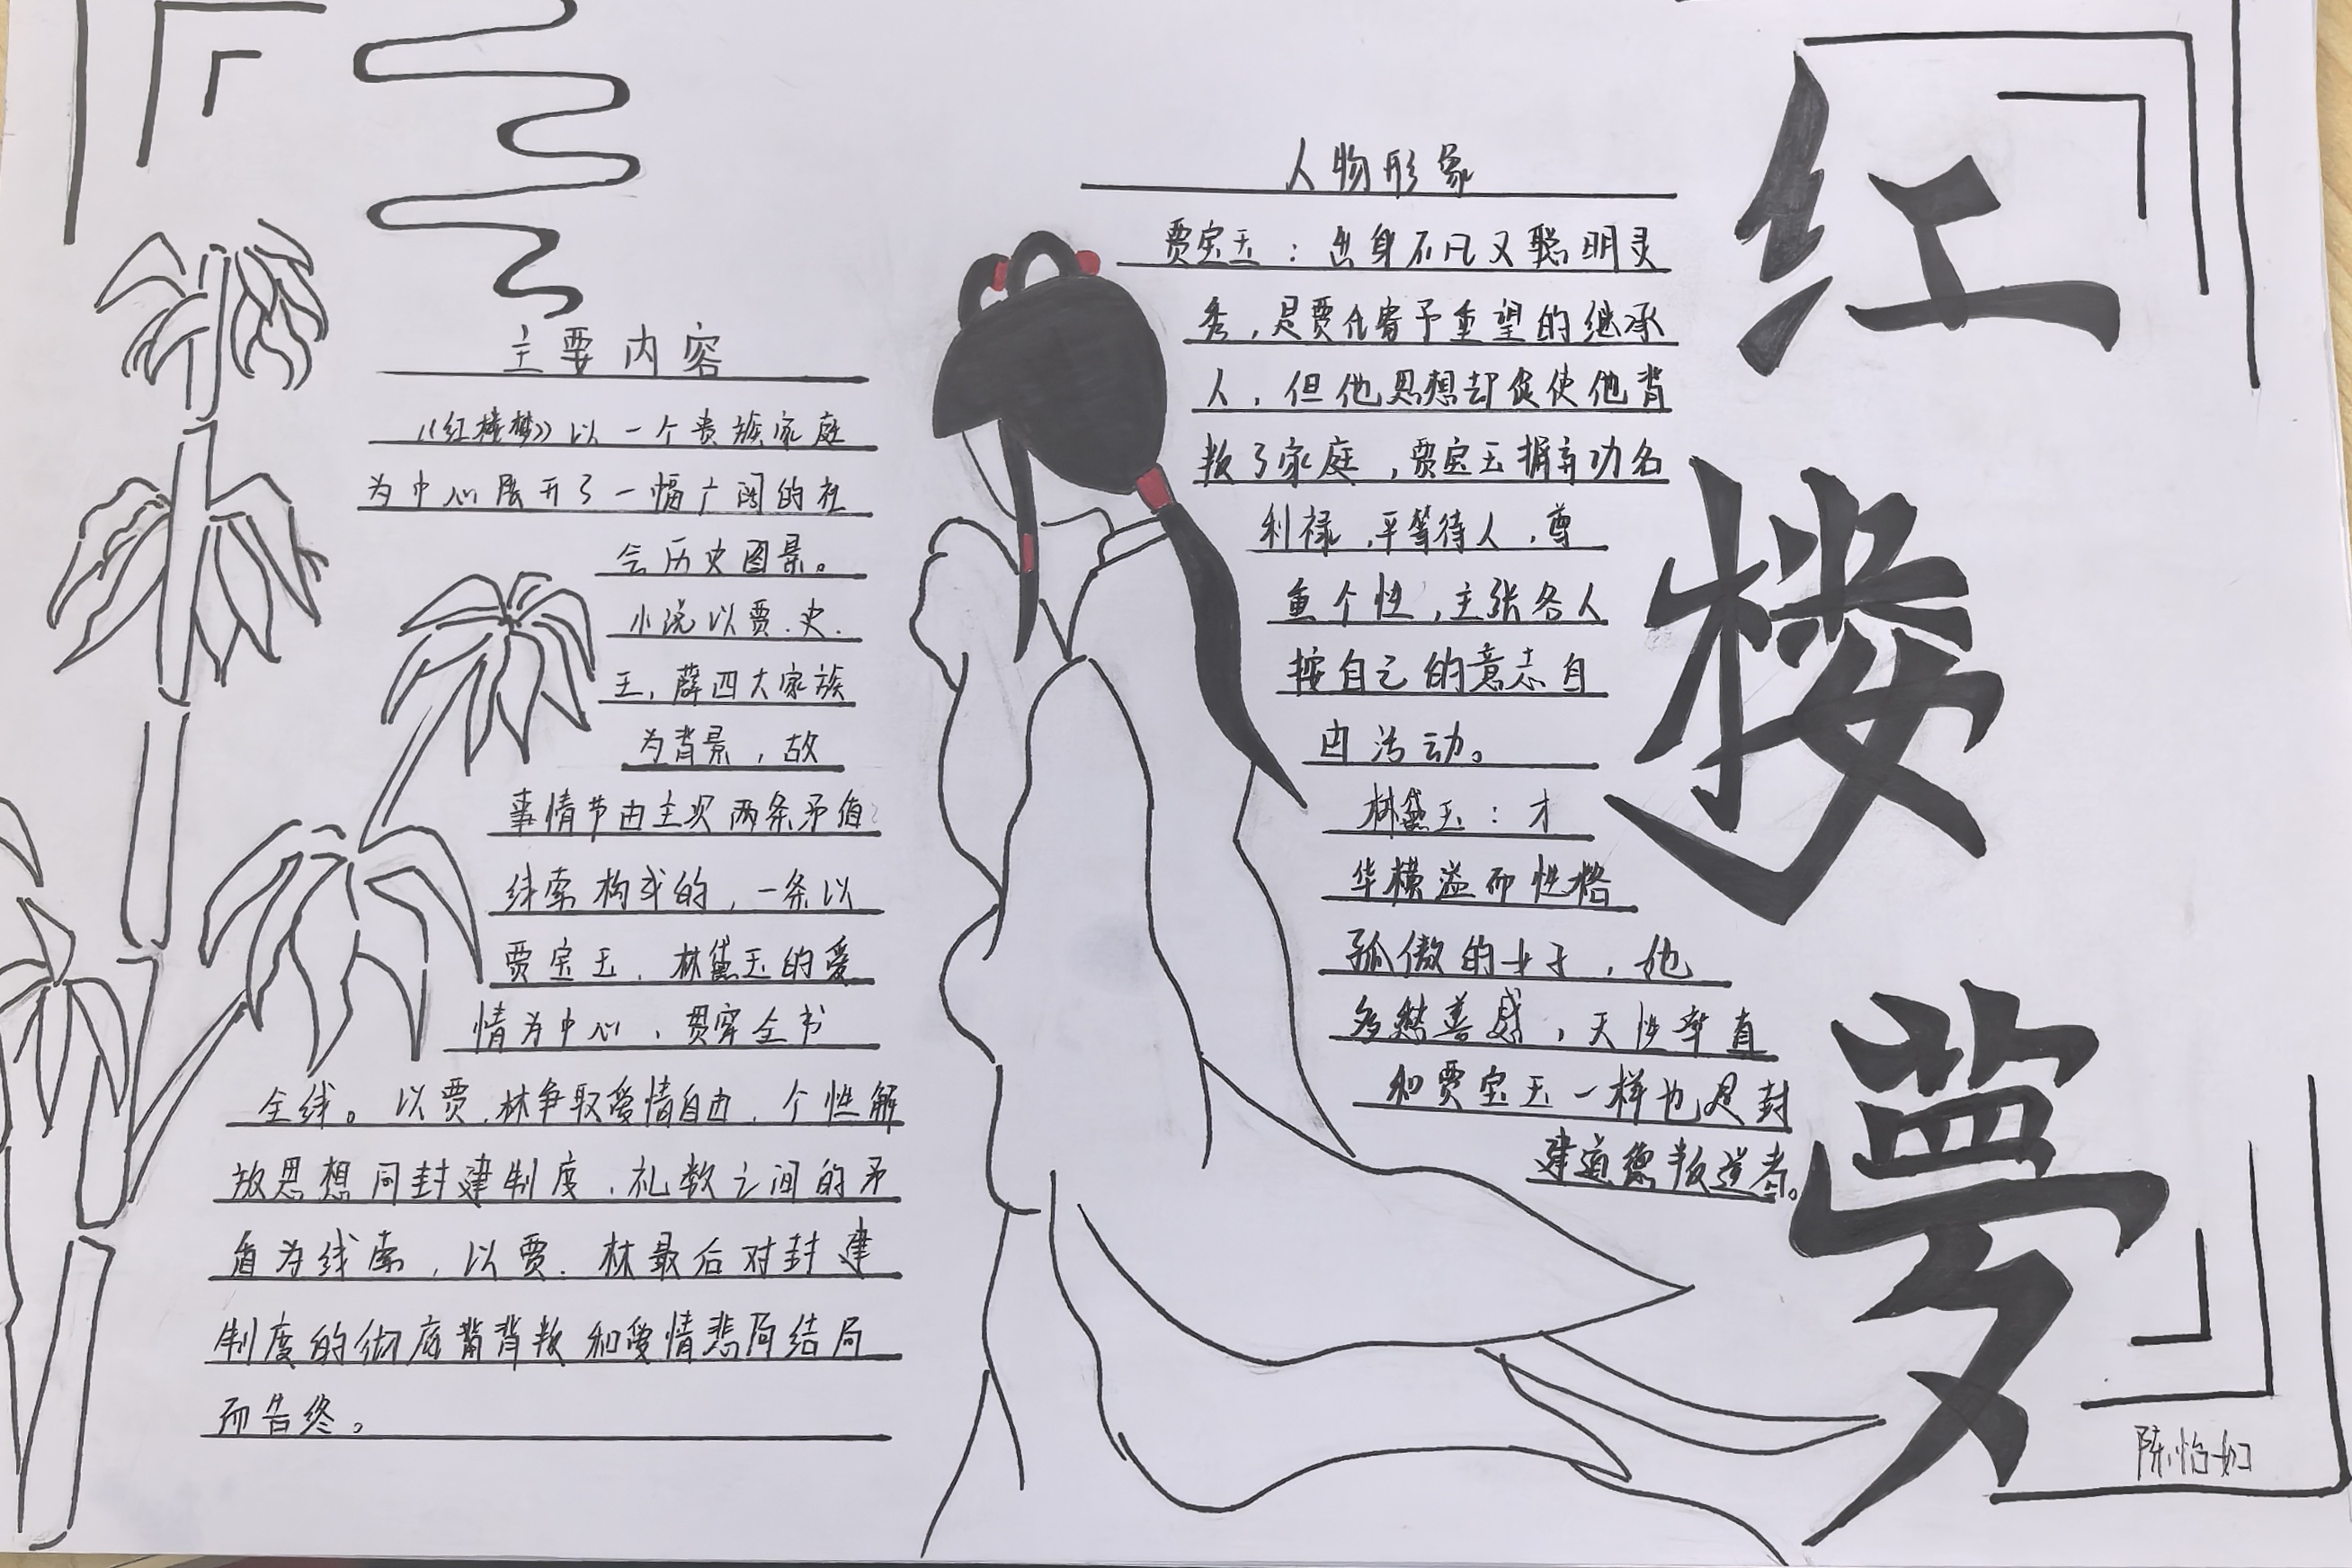 红楼梦
主要内容
《红楼梦》以一个贵族家庭
为中心展开了一幅广阔的社
会历史图景。
小说以贾.史.
王,薛四大家族
为背景,故
事情节由主次两条矛盾
线索构成的,一条以
贾宝玉、林黛玉的爱
情为中心,贯穿全书
全线。以贾.林争取爱情自由、个性解
放思想同封建制度、礼数之间的矛
盾为线索,以贾.林最后对封建
制度的彻底背叛和爱情悲局结局
而告终。
人物形象
贾宝玉:出身不凡又聪明灵
秀,是贾 寄予重望的继承
人,但他思想却促使他背
叛了家庭,贾宝玉摒弃功名
利禄,平等待人,尊
重个性,主张各人
按自己的意志自
由活动。
林黛玉:才
华横溢而性格
孤傲的女子,她
多愁善感,天性率直
和贾宝玉一样也是封
建道德叛逆者。
陈怡如